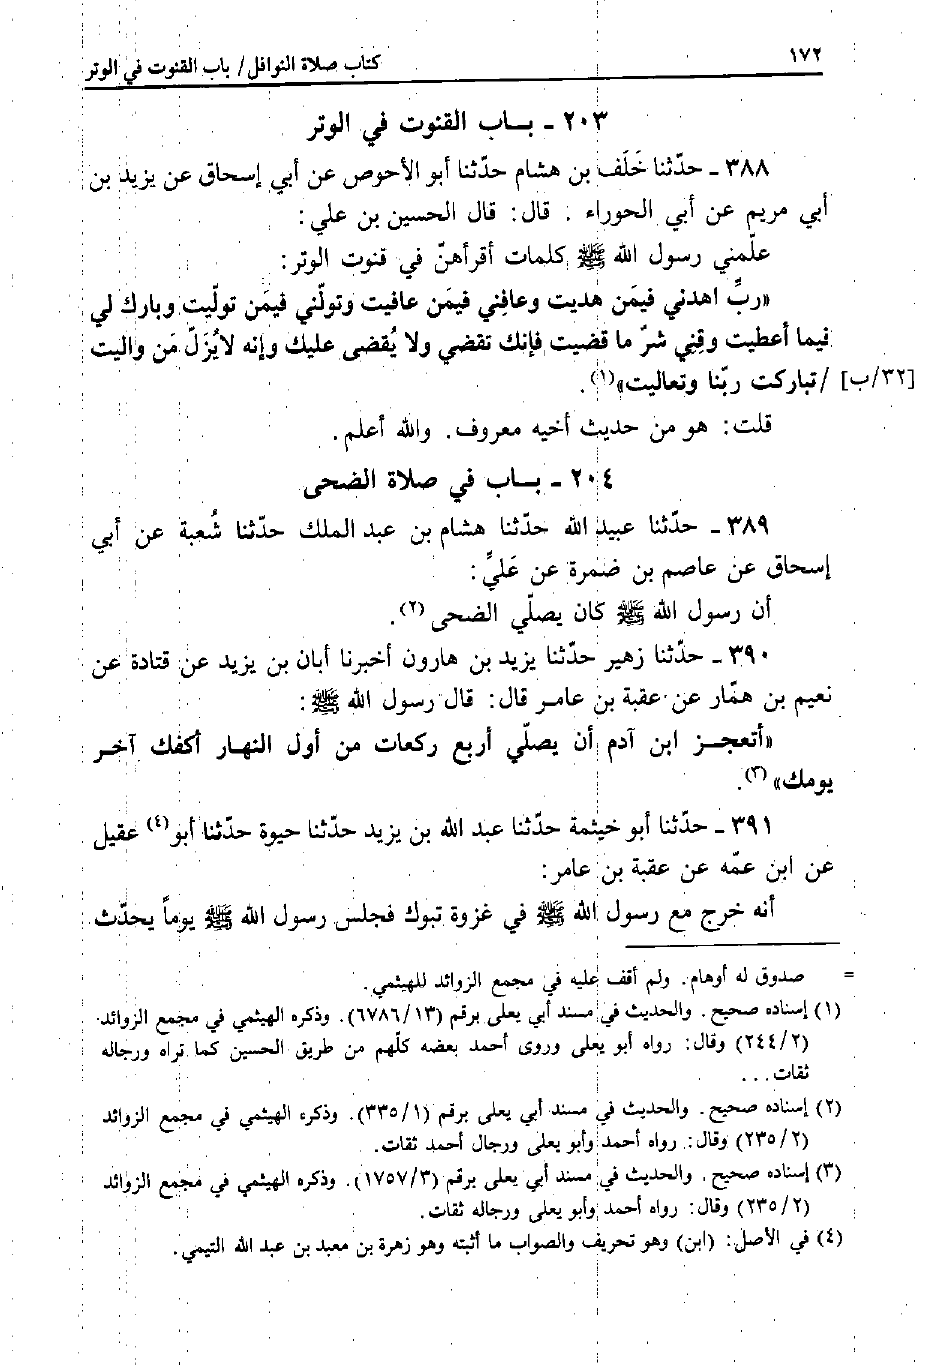 ١٧٢ كتاب صلاة النوافل/ باب القنوت في الوتر
٢٠٣ ـ بـاب القنوت في الوتر
٣٨٨ ـ حدّثنا خَلَف بن هشام حدّثنا أبو الأحوص عن أبي إسحاق عن يزيد بن
أبي مريم عن أبي الحوراء . قال: قال الحسين بن علي:
علّمني رسول الله ﷺ كلمات أقرأهنّ في قنوت الوتر:
«ربِّ اهدني فيمَن هديت وعافِني فيمَن عافيت وتولّني فيمَن تولّيت وبارك لي
فيما أعطيت وقِني شرّ ما قضيت فإنك تقضي ولا يُقضى عليك وإنه لا يُزَلّ مَن واليت
[٣٢/ب] /تباركت ربّنا وتعاليت»(١).
قلت: هو من حديث أخيه معروف. والله أعلم.
٢٠٤ ـ بـاب في صلاة الضحى
٣٨٩ ـ حدّثنا عبيد الله حدّثنا هشام بن عبد الملك حدّثنا شُعبة عن أبي
إسحاق عن عاصم بن ضمرة عن عَليٍّ:
أن رسول الله ﷺ كان يصلّي الضحى(٢).
٣٩٠ ـ حدّثنا زهير حدّثنا يزيد بن هارون أخبرنا أبان بن يزيد عن قتادة عن
نعيم بن همّار عن عقبة بن عامر قال: قال رسول الله ﷺ:
«أتعجـز ابن آدم أن يصلّي أربع ركعات من أول النهار أكفك آخـر
يومك»(٣).
٣٩١ ـ حدّثنا أبو خيثمة حدّثنا عبد الله بن يزيد حدّثنا حيوة حدّثنا أبو(٤) عقيل
عن ابن عمّه عن عقبة بن عامر:
أنه خرج مع رسول الله ﷺ في غزوة تبوك فجلس رسول الله ﷺ يوماً يحدّث
= صدوق له أوهام. ولم أقف عليه في مجمع الزوائد للهيثمي.
(١) إسناده صحيح. والحديث في مسند أبي يعلى برقم (٦٧٨٦/١٣). وذكره الهيثمي في مجمع الزوائد
(٢٤٤/٢) وقال: رواه أبو يعلى وروى أحمد بعضه كلّهم من طريق الحسين كما تراه ورجاله
ثقات...
(٢) إسناده صحيح. والحديث في مسند أبي يعلى برقم (٣٣٥/١). وذكره الهيثمي في مجمع الزوائد
(٢٣٥/٢) وقال: رواه أحمد وأبو يعلى ورجال أحمد ثقات.
(٣) إسناده صحيح. والحديث في مسند أبي يعلى برقم (١٧٥٧/٣). وذكره الهيثمي في مجمع الزوائد
(٢٣٥/٢) وقال: رواه أحمد وأبو يعلى ورجاله ثقات.
(٤) في الأصل: (ابن) وهو تحريف والصواب ما أثبته وهو زهرة بن معبد بن عبد الله التيمي.